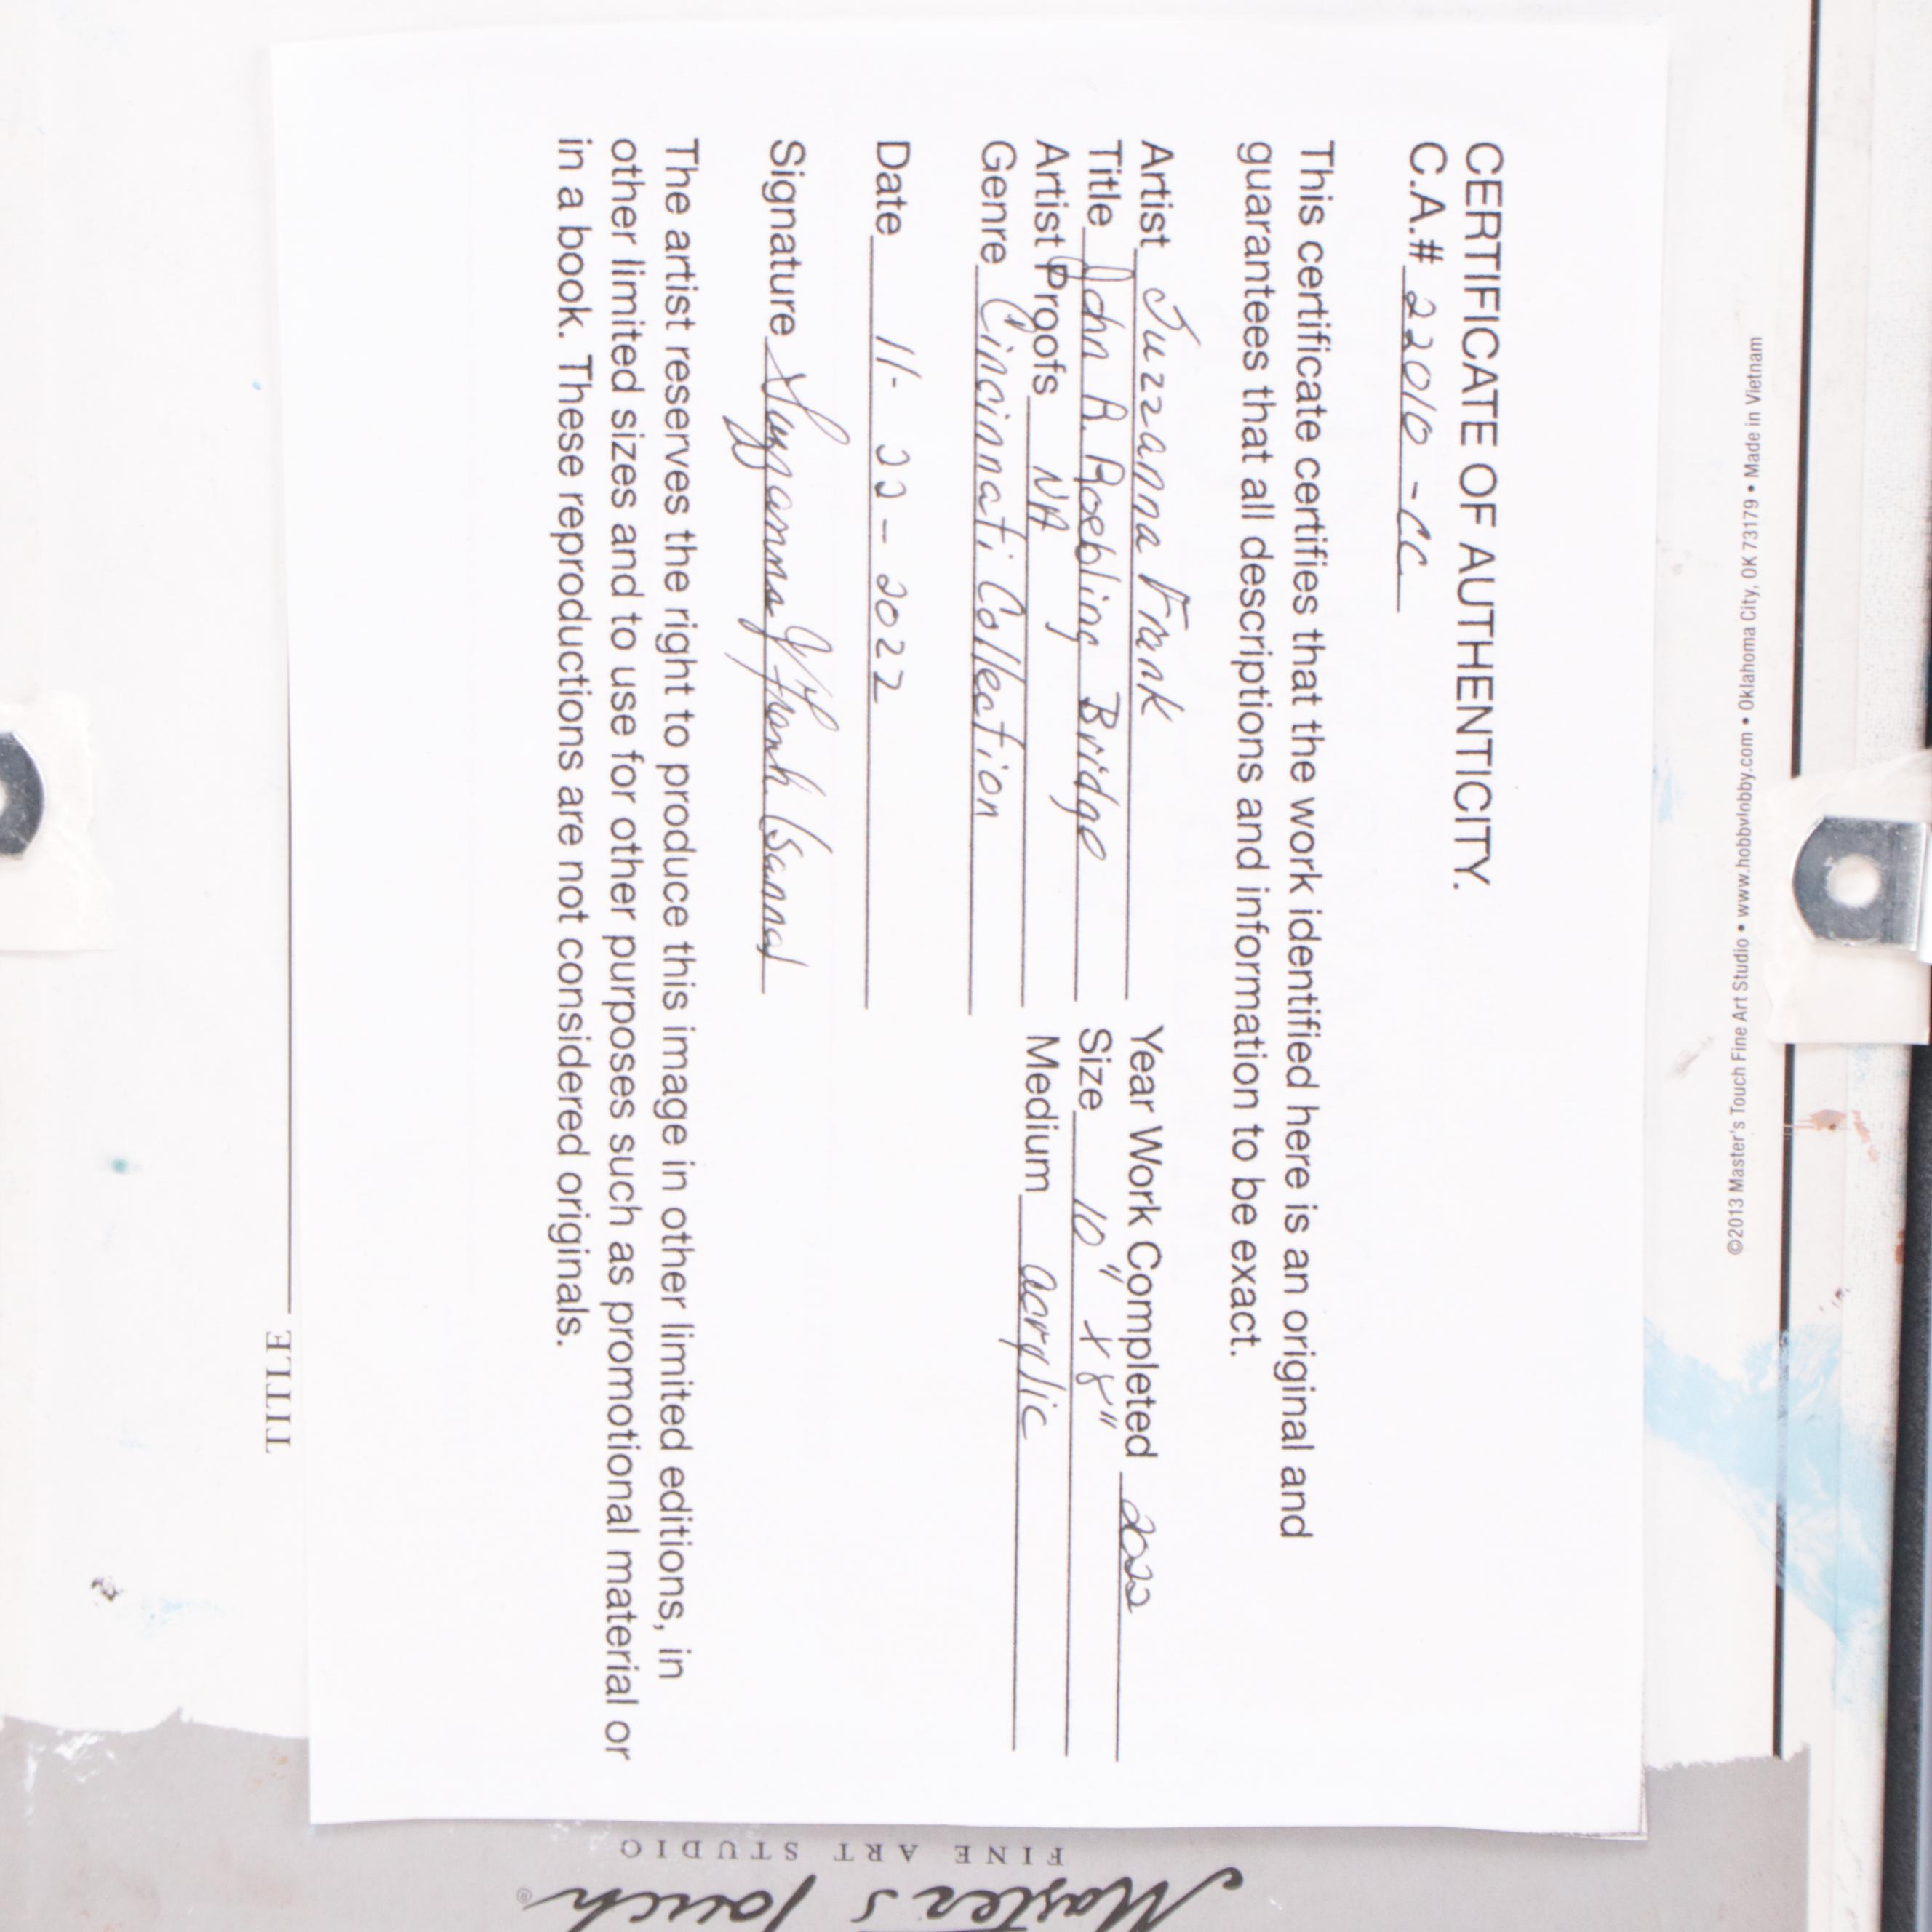 CERTIFICATE OF AUTHENTICITY.
C.A.# 22010-CC
This certificate certifies that the work identified here is an original and
guarantees that all descriptions and information to be exact.
Artist Suzzanna Frank Year Work Completed 2022
Title John A. Roebling Bridge Size 10" x 8"
Artist Proofs NA Medium acrylic
Genre Cincinnati Collection
Date 11-22-2022
Signature Suzzanna Frank (Sanna)
The artist reserves the right to produce this image in other limited editions, in
other limited sizes and to use for other purposes such as promotional material or
in a book. These reproductions are not considered originals.
©2013 Master's Touch Fine Art Studio • www.hobbylobby.com • Oklahoma City, OK 73179 • Made in Vietnam
TITLE
Master's Touch®
FINE ART STUDIO